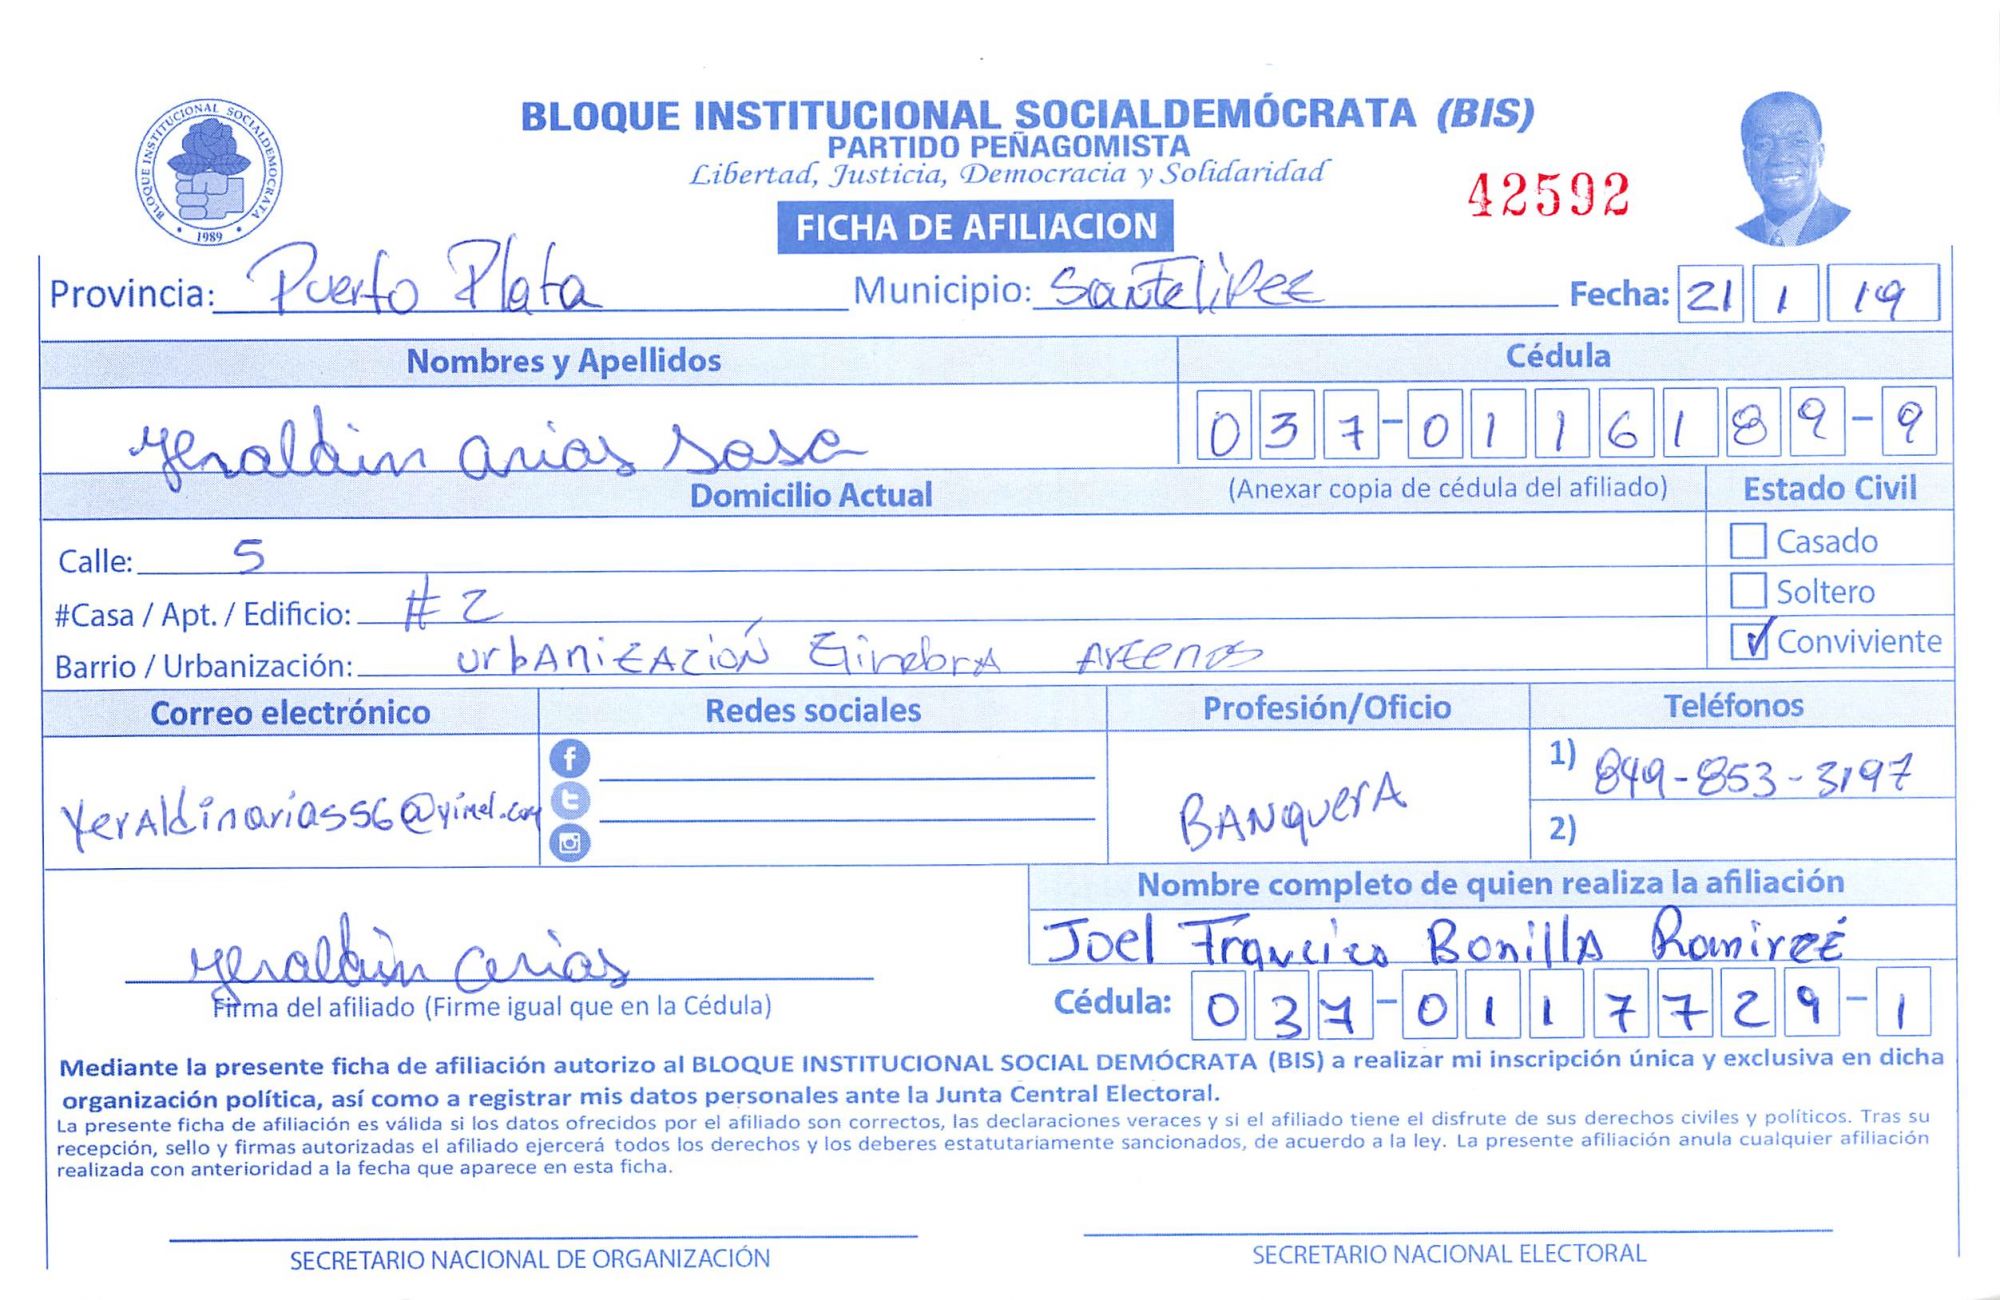 BLOQUE INSTITUCIONAL SOCIALDEMÓCRATA (BIS)
PARTIDO PEÑAGOMISTA
Libertad, Justicia, Democracia y Solidaridad
42592
FICHA DE AFILIACION
BLOQUE INSTITUCIONAL SOCIALDEMOCRATA
1989
Provincia: Puerto Plata Municipio: Fecha: 21 1 19
Nombres y Apellidos Cédula
Yeraldin Arias Sosa 037-0116189-9
Domicilio Actual (Anexar copia de cédula del afiliado) Estado Civil
Calle: 5 Casado
#Casa / Apt. / Edificio: # 2 Soltero
Barrio / Urbanización: urbAniZAción Ginebra Conviviente
Correo electrónico Redes sociales Profesión/Oficio Teléfonos
1) 849-853-3197
YerAldinarias56@yimel.com BANquerA
2)
Nombre completo de quien realiza la afiliación
Joel Francico BonillA Ramirez
Yeraldin Arias
Firma del afiliado (Firme igual que en la Cédula) Cédula: 037-0117729-1
Mediante la presente ficha de afiliación autorizo al BLOQUE INSTITUCIONAL SOCIAL DEMÓCRATA (BIS) a realizar mi inscripción única y exclusiva en dicha
organización política, así como a registrar mis datos personales ante la Junta Central Electoral.
La presente ficha de afiliación es válida si los datos ofrecidos por el afiliado son correctos, las declaraciones veraces y si el afiliado tiene el disfrute de sus derechos civiles y políticos. Tras su
recepción, sello y firmas autorizadas el afiliado ejercerá todos los derechos y los deberes estatutariamente sancionados, de acuerdo a la ley. La presente afiliación anula cualquier afiliación
realizada con anterioridad a la fecha que aparece en esta ficha.
SECRETARIO NACIONAL DE ORGANIZACIÓN SECRETARIO NACIONAL ELECTORAL